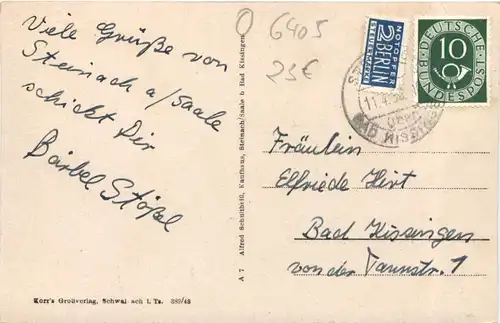 Viele Grüße von
Steinach a/Saale
schickt Dir
Bärbel Stößel
Korr's Großverlag, Schwalbach i. Ts. 389/48
A 7 Alfred Schultheiß, Kaufhaus, Steinach/Saale b Bad Kissingen
6405
23€
NOTOPFER
2 BERLIN
STEUERMARKE
DEUTSCHE BUNDESPOST
10
11.4.
über
BAD KISSINGEN
Fräulein
Elfriede Hirt
Bad Kissingen
von der Tannstr. 1